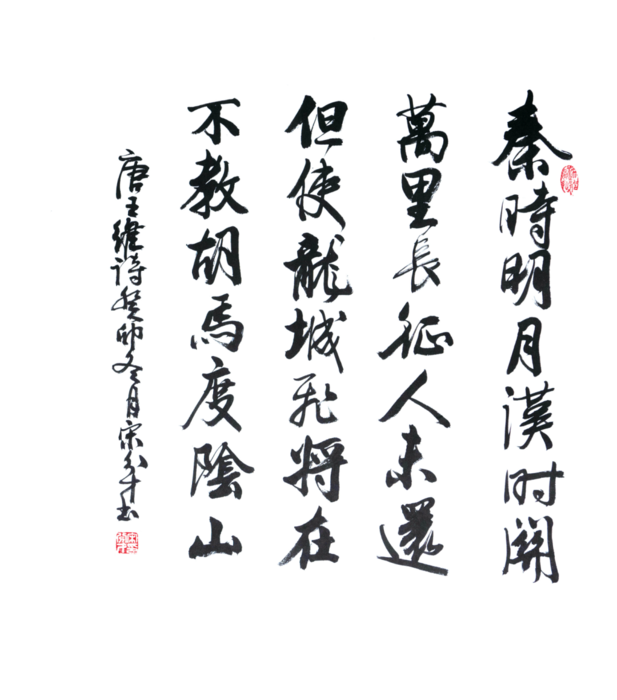 秦時明月漢时關
萬里長征人未還
但使龍城飛將在
不教胡馬度陰山
唐王維詩癸卯冬月宋才书